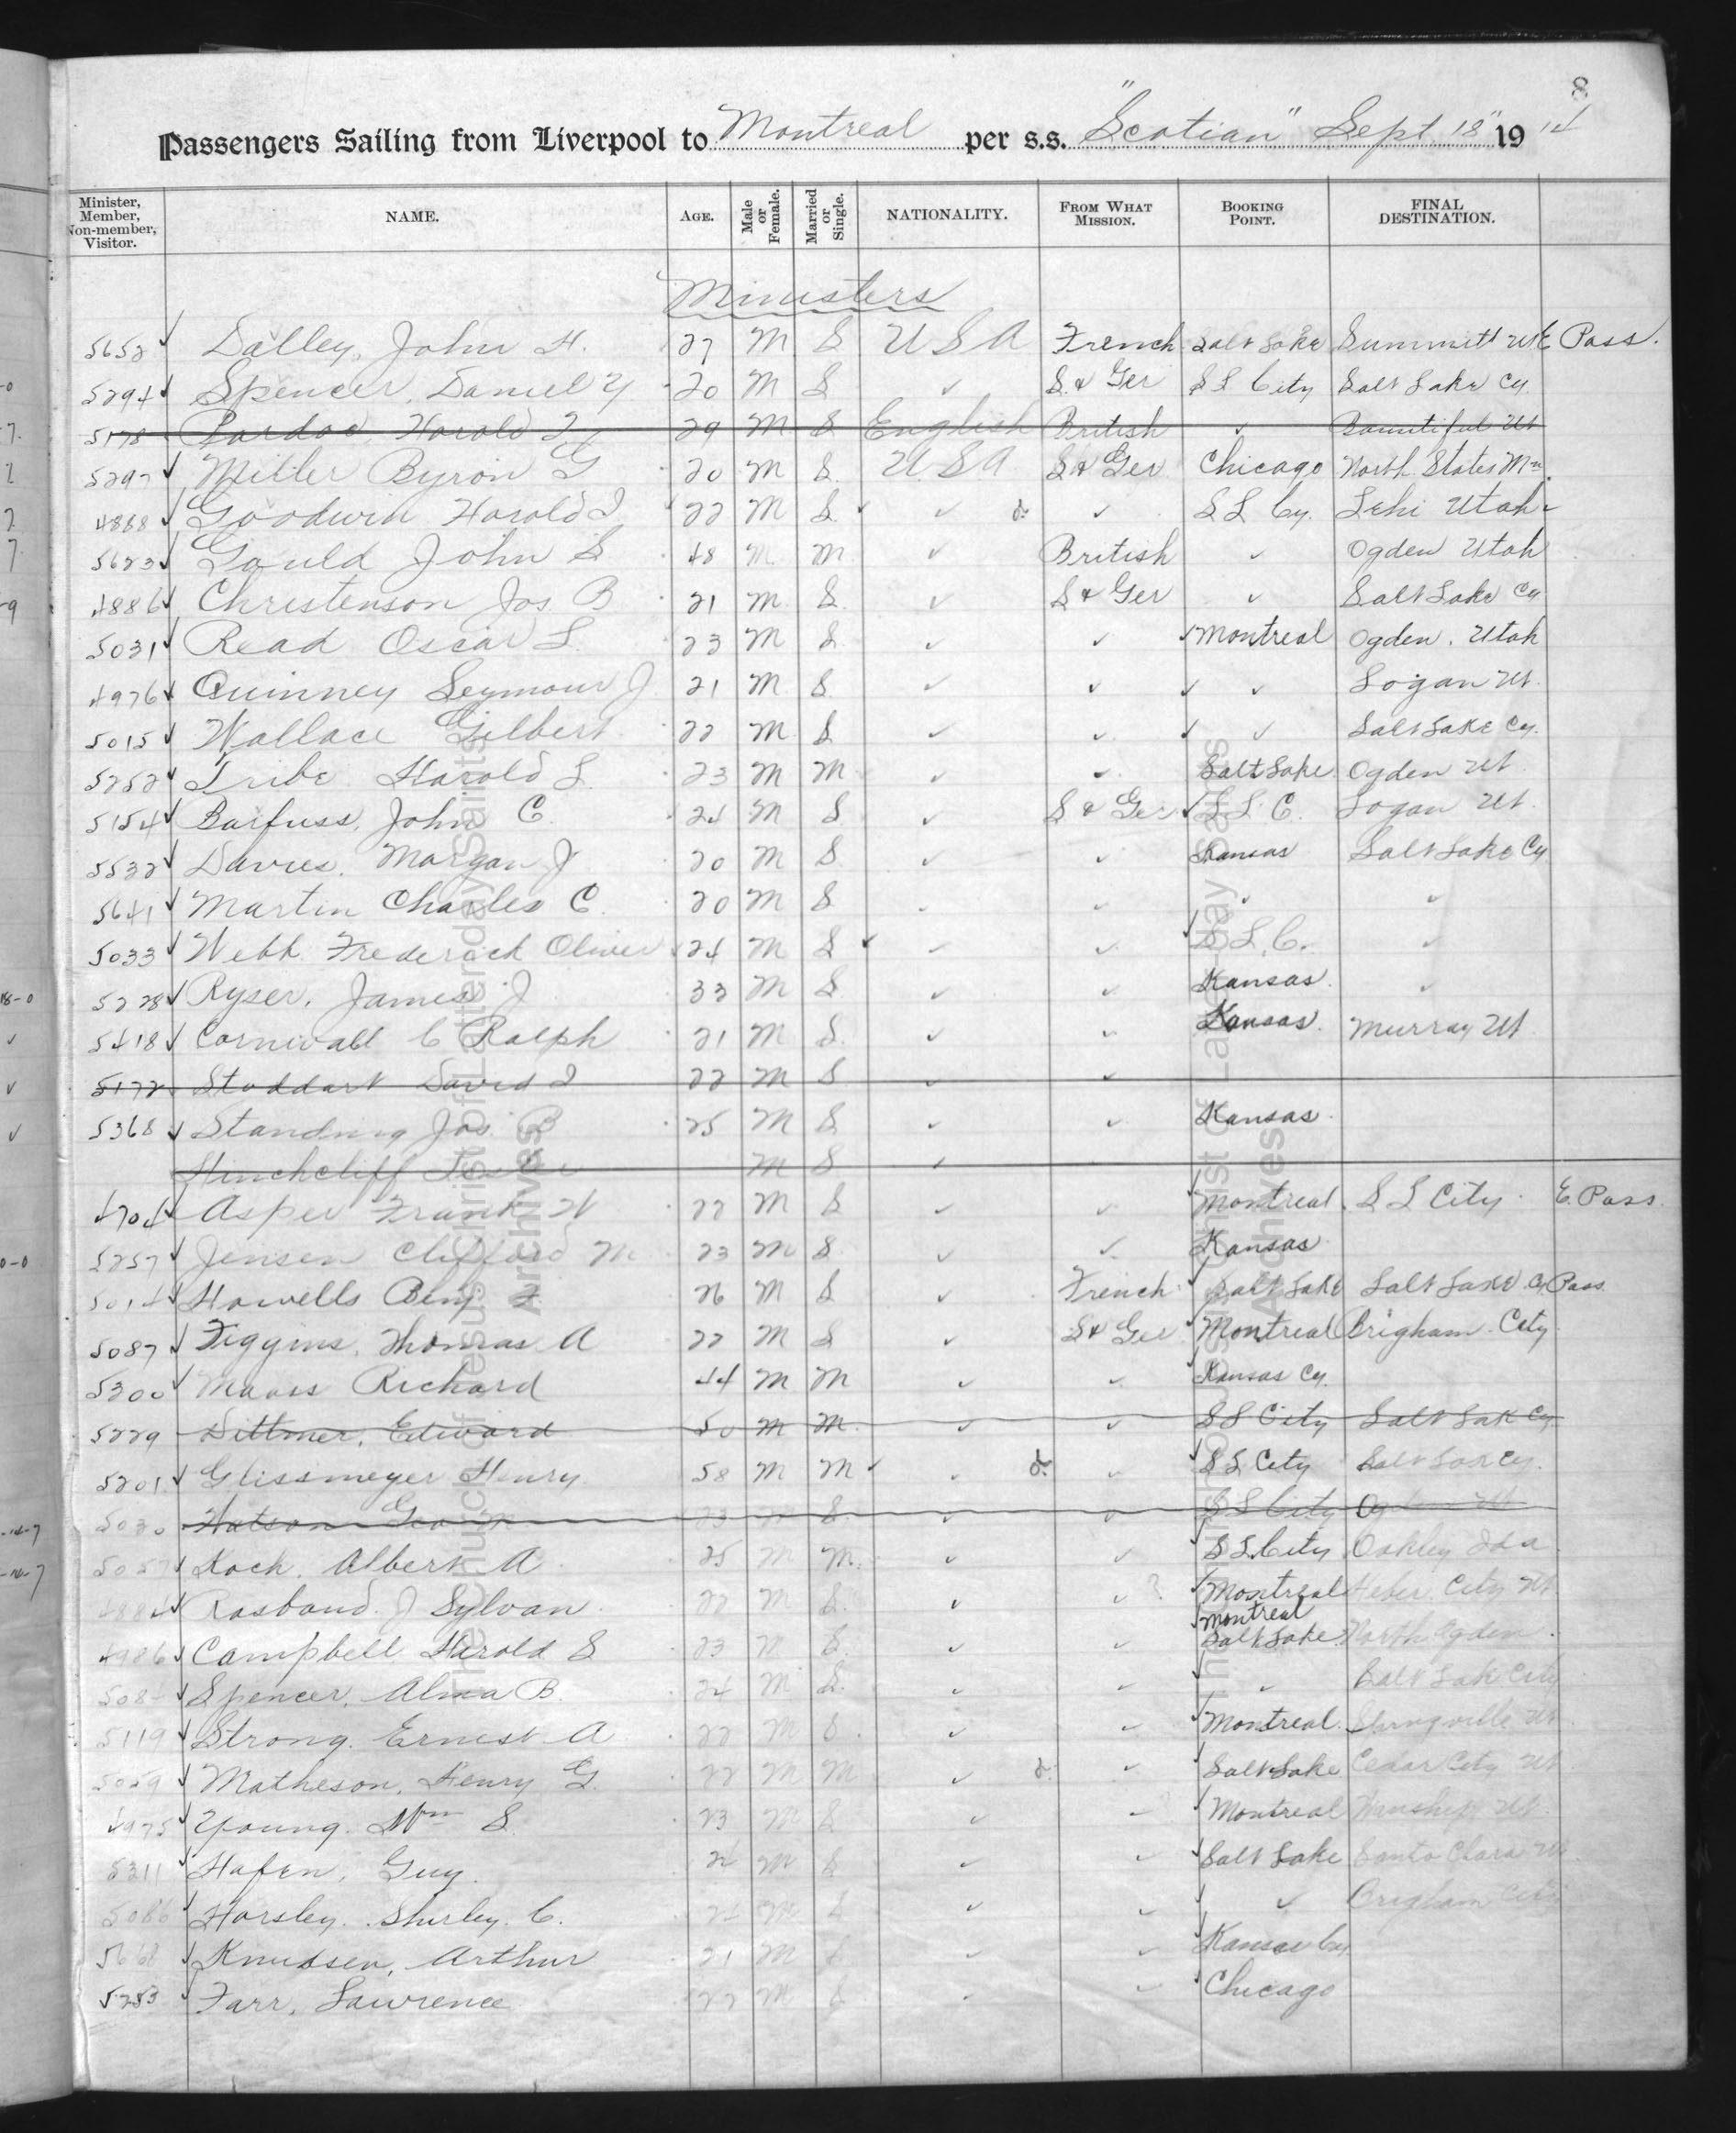 8
Passengers Sailing from Liverpool to Montreal per s.s. "Scotian" Sept 18" 19 14
Minister, Member, Non-member, Visitor. NAME. AGE. Male or Female. Married or Single. NATIONALITY. FROM WHAT MISSION. BOOKING POINT. FINAL DESTINATION.
Ministers
5652 ✓ Dalley, John H. 27 M S U S A French Salt Lake Summitt Ut E Pass.
5294 ✓ Spencer, Daniel Y 20 M S ✓ S & Ger S L City Salt Lake Cy.
5178 Pardoe, Harold T 29 M S English British ✓ Bountiful Ut
5297 ✓ Miller Byron G 20 M S. U S A S & Ger Chicago North States Mn.
4868 ✓ Goodwin Harold I 22 M S. ✓ ✓ ✓ S L Cy. Lehi Utah
5623 ✓ Gould John S 48 M M ✓ British ✓ Ogden Utah
4886 ✓ Christenson Jos B 21 M S. ✓ S & Ger ✓ Salt Lake Cy
5031 ✓ Read Oscar L. 23 M S ✓ ✓ ✓ Montreal Ogden. Utah
4976 ✓ Quinney Seymour J 21 M S ✓ ✓ ✓ ✓ Logan Ut.
5015 ✓ Wallace Gilbert 22 M S ✓ ✓ ✓ ✓ Salt Lake Cy.
5252 ✓ Tribe Harold L 23 M M ✓ ✓ Salt Lake Ogden Ut
5154 ✓ Barfuss, John C. 24 M S ✓ S & Ger ✓ S L C. Logan Ut.
5532 ✓ Davies, Morgan J 20 M S. ✓ ✓ Kansas Salt Lake Cy
5641 ✓ Martin Charles C. 20 M S ✓ ✓ ✓ ✓
5033 ✓ Webb Frederick Oliver 24 M S ✓ ✓ ✓ ✓ S. L. C. ✓
5228 ✓ Ryser, James J 33 M S ✓ ✓ Kansas. ✓
5418 ✓ Cornwall C Ralph 21 M S. ✓ ✓ Kansas. Murray Ut
5172 Stoddart David I 22 M S ✓ ✓
5368 ✓ Standing Jos. B 25 M S ✓ ✓ Kansas.
Hinchcliff M S ✓
4704 Asper Frank W 22 M S ✓ ✓ Montreal. S L City. E. Pass.
5257 Jensen Clifford M 23 M S ✓ ✓ Kansas
5014 ✓ Howells Benj F 26 M S ✓ French Salt Lake Salt Lake C. Pass
5087 ✓ Figgins, Thomas A 22 M S ✓ S & Ger Montreal Brigham City
5300 ✓ Maais Richard 44 M M ✓ ✓ Kansas Cy.
5229 Dittmer, Edward 50 M M. ✓ ✓ S L City Salt Lak Cy
5201 ✓ Glissmeyer Henry. 58 M M ✓ ✓ ✓ S L City Salt Lak Cy.
5030 Watson Geo M 23 M S ✓ ✓ S L City Ogden Ut
5057 Koch. Albert A 25 M M. ✓ ✓ S L City Oakley Ida.
4884 ✓ Rasband. J Sylvan 22 M S. ✓ ✓ ? Montreal Heber City Ut.
Montreal
4986 ✓ Campbell Harold S 23 M S. ✓ ✓ Salt Lake North Ogden.
508 ✓ Spencer, Alma B. 24 M S. ✓ ✓ ✓ Salt Lake City
5119 ✓ Strong. Ernest A 22 M S. ✓ ✓ Montreal. Springville Ut
5059 ✓ Matheson, Henry G. 22 M M ✓ ✓ Salt Lake Cedar City Ut
4975 ✓ Young. Wm S. 23 M S ✓ ✓ Montreal Wanship Ut.
5311 ✓ Hafen, Guy. 24 M S ✓ ✓ Salt Lake Santa Clara Ut.
5086 ✓ Horsley. Shirley. C. 24 M S ✓ ✓ ✓ Brigham City
5668 ✓ Knudsen, Arthur 21 M S ✓ ✓ Kansas Cy
5253 ✓ Farr, Lawrence 22 M S ✓ ✓ Chicago
The Church of Jesus Christ of Latter-day Saints
Archives
The Church of Jesus Christ of Latter-day Saints
Archives